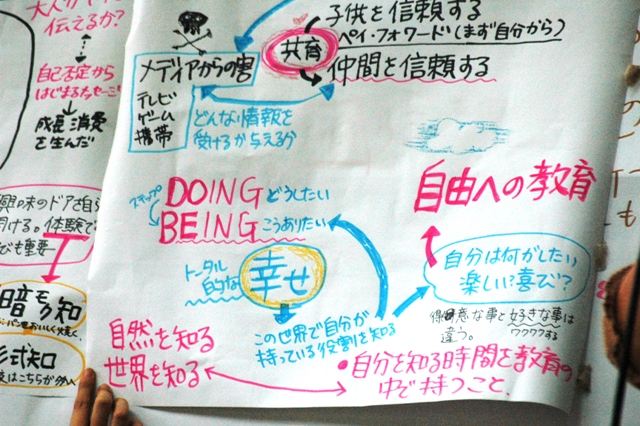 伝えるか?
自己否定から
はじまるメッセージ
成長 消費
を生んだ
味のドア
ける。体験で
も重要
暗黙知
形式知
はこちらが
子供を信頼する
ペイ・フォワード(まず自分から)
共育
仲間を信頼する
メディアからの害
テレビ
ゲーム
携帯
どんな情報を
受けるか与えるか
自由への教育
ステップ
DOING どうしたい
BEING こうありたい
トータル
的な
幸せ
この世界で自分が
持っている役割を知る
自分は何がしたい
楽しい?喜び?
得意な事と好きな事は
違う。
ワクワクする
自然を知る
世界を知る
•自分を知る時間を教育の
中で持つこと.